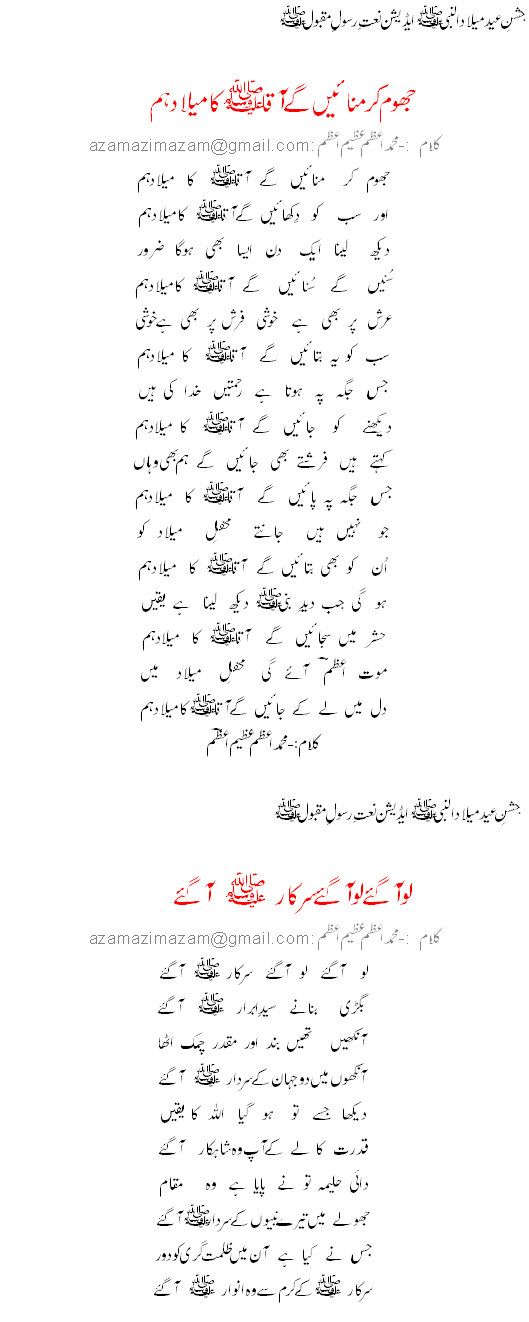 جشنِ عید میلادالنبیﷺ ایڈیشن نعتِ رسولِ مقبولﷺ
جھوم کر منائیں گے آقاﷺ کا میلاد ہم
کلام :- محمد اعظم عظیم اعظم :azamazimazam@gmail.com
جھوم کر منائیں گے آقاﷺ کا میلاد ہم
اور سب کو دِکھائیں گے آقاﷺ کا میلاد ہم
دیکھ لینا ایک دن ایسا بھی ہوگا ضرور
سُنیں گے سُنائیں گے آقاﷺ کا میلاد ہم
عرش پر بھی ہے خوشی فرش پر بھی ہے خوشی
سب کو یہ بتائیں گے آقاﷺ کا میلاد ہم
جس جگہ پہ ہوتا ہے رحمتیں خدا کی ہیں
دیکھنے کو جائیں گے آقاﷺ کا میلاد ہم
کہتے ہیں فرشتے بھی جائیں گے ہم بھی وہاں
جس جگہ پہ پائیں گے آقاﷺ کا میلاد ہم
جو نہیں ہیں جانتے محفلِ میلاد کو
اُن کو بھی بتائیں گے آقاﷺ کا میلاد ہم
ہو گی جب دیدِ نبیﷺ دیکھ لینا ہے یقیں
حشر میں سجائیں گے آقاﷺ کا میلاد ہم
موت اعظمؔ آئے گی محفلِ میلاد میں
دل میں لے کے جائیں گے آقاﷺ کا میلاد ہم
کلام:- محمد اعظم عظیم اعظم
جشنِ عید میلادالنبیﷺ ایڈیشن نعتِ رسولِ مقبولﷺ
لو آ گئے لو آ گئے سرکار ﷺ آ گئے
کلام :- محمد اعظم عظیم اعظم :azamazimazam@gmail.com
لو آ گئے لو آ گئے سرکار ﷺ آ گئے
بگڑی بنانے سیدِ ابرار ﷺ آ گئے
آنکھیں تھیں بند اور مقدر چمک اٹھا
آنکھوں میں دو جہان کے سردار ﷺ آ گئے
دیکھا جسے تو ہو گیا اللہ کا یقیں
قدرت کا لے کے آپ وہ شاہکار آ گئے
دائی حلیمہ تو نے پایا ہے وہ مقام
جھولے میں تیرے نبیوں کے سردارﷺ آ گئے
جس نے کیا ہے آن میں ظلمت گری کو دور
سرکار ﷺ کے کرم سے وہ انوار ﷺ آ گئے